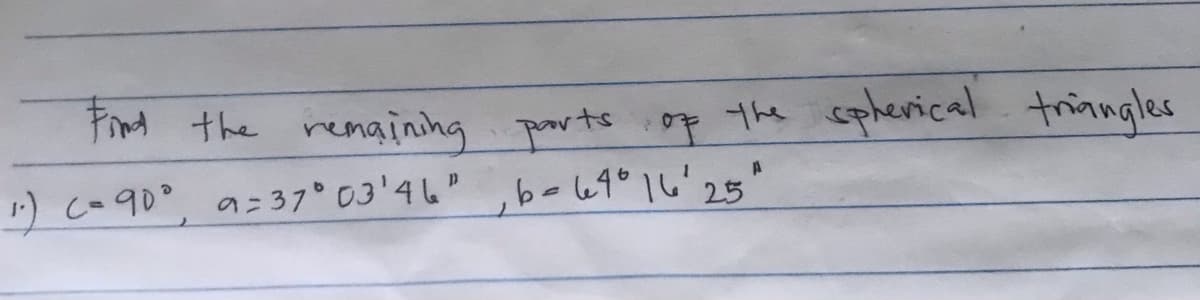 Find the remaining parts of the spherical triangles
1.) C=90°, a=37°03'46", b=64°16'25"